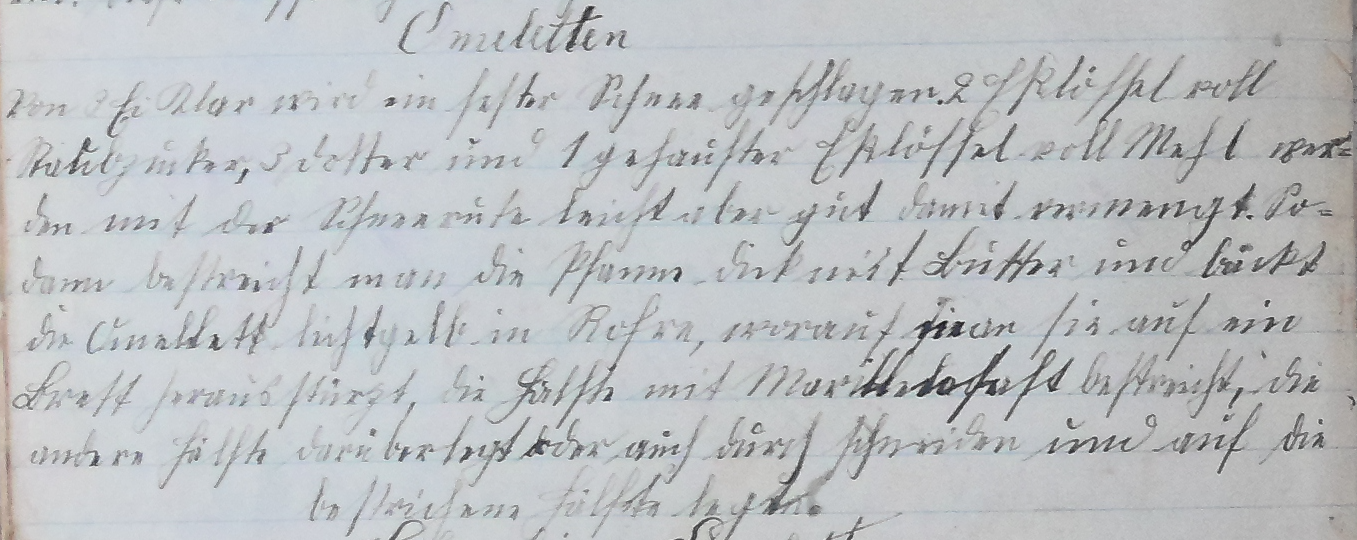 Omeletten
Von 3 Ei Klar wird ein fester Schnee geschlagen. 2 Eßlöffel voll
Staubzucker, 3 dotter und 1 gehaufter Eßlöffel voll Mehl wer=
den mit der Schneerute leicht aber gut damit vermengt. So=
dann bestreicht man die Pfanne dick mit Butter und bäckt
die Omelett lichtgelb in Rohre, worauf man sie auf ein
Brett herausstürzt, die Hälfte mit bestreicht, die
andere Hälfte darüberlegt oder auch durch schneiden und auf die
bestrichene Hälfte legen.